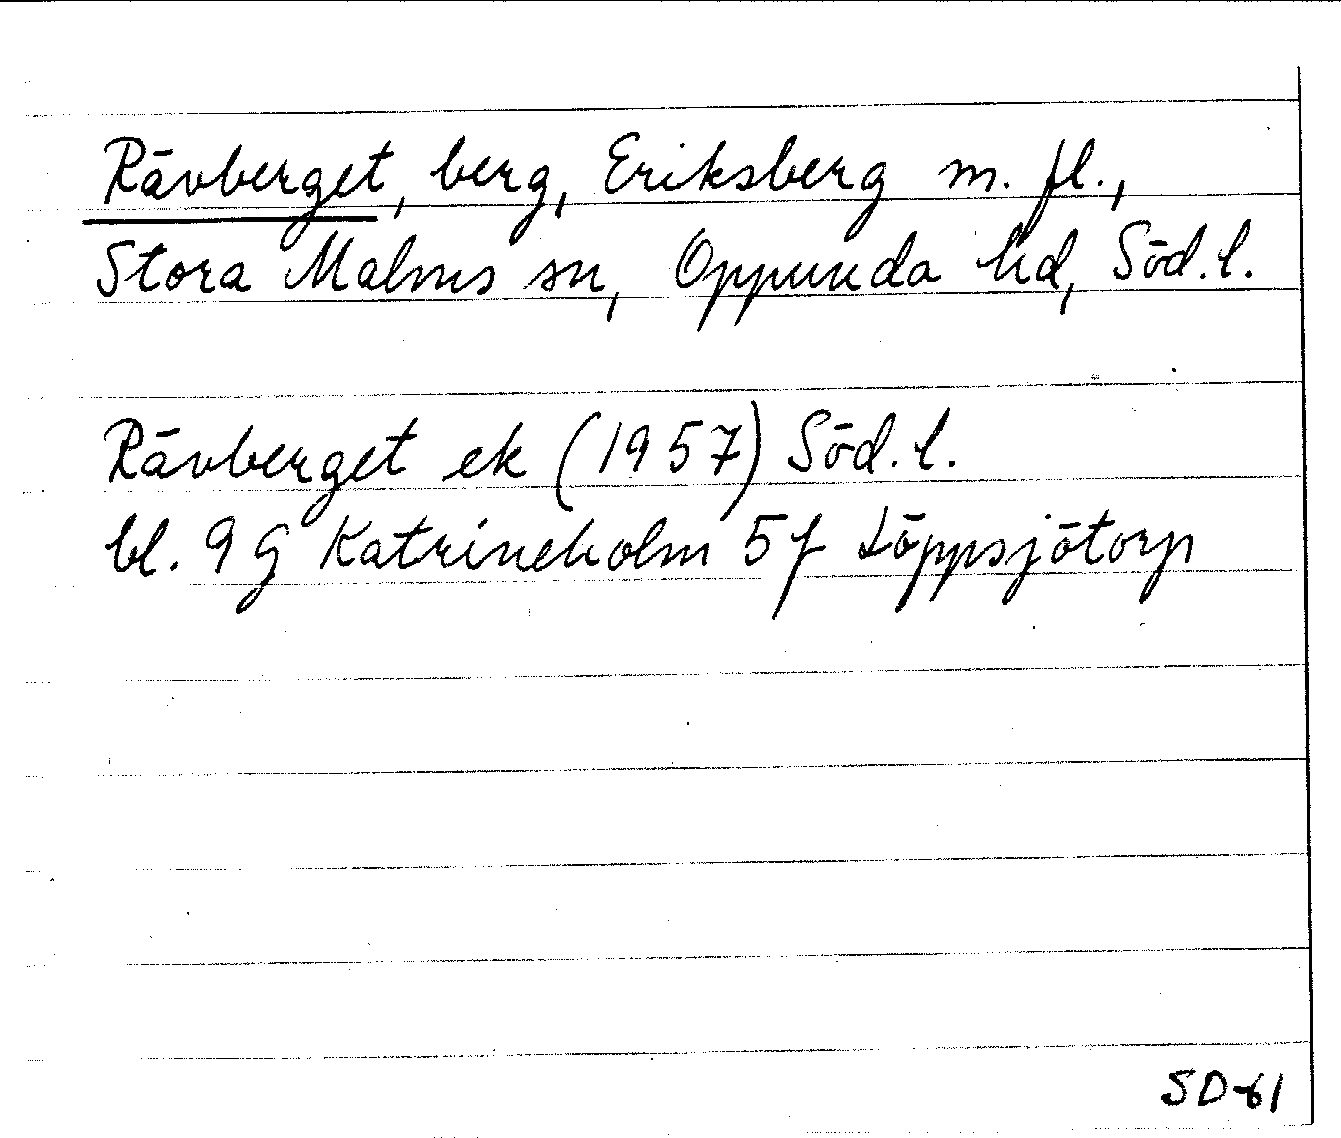 Rävberget, berg, Eriksberg m. fl.,
Stora Malms sn, Oppunda hd, Söd. l.
Rävberget ek (1957) Söd. l.
bl. 9G Katrineholm 5f Löppsjötorp
SD-61